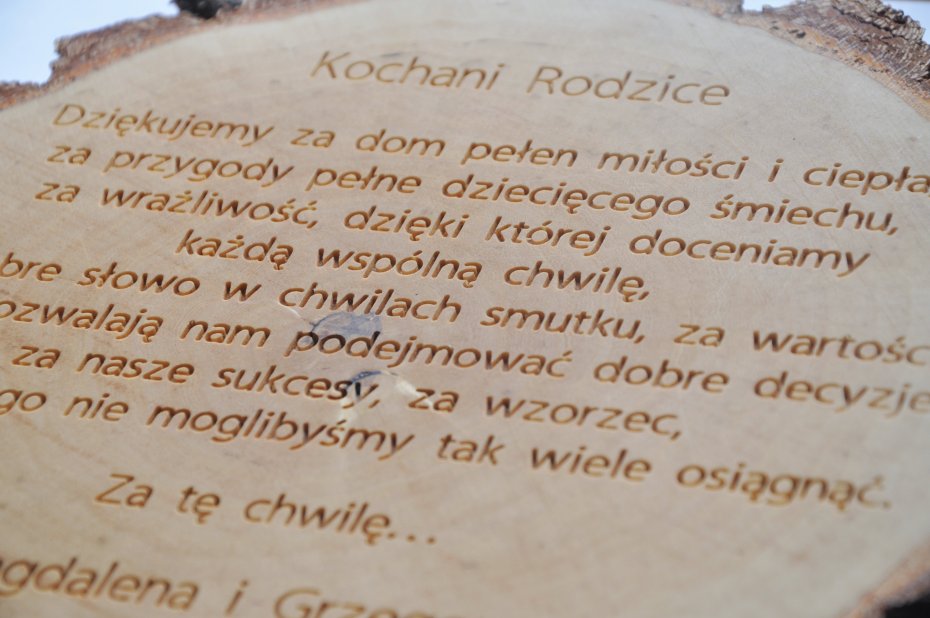 Kochani Rodzice
Dziękujemy za dom pełen miłości i ciepła
za przygody pełne dziecięcego śmiechu,
za wrażliwość, dzięki której doceniamy
każdą wspólną chwilę,
bre słowo w chwilach smutku, za wartośc
ozwalają nam podejmować dobre decyzje
za nasze sukcesy, za wzorzec,
go nie moglibyśmy tak wiele osiągnąć.
Za tę chwilę...
gdalena i Grzeg